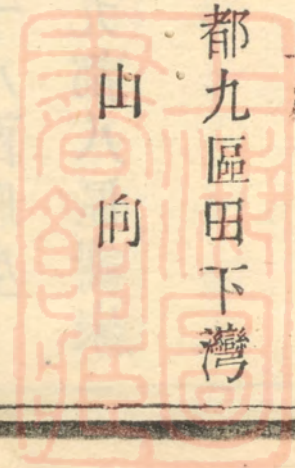 都九區田下灣
山向